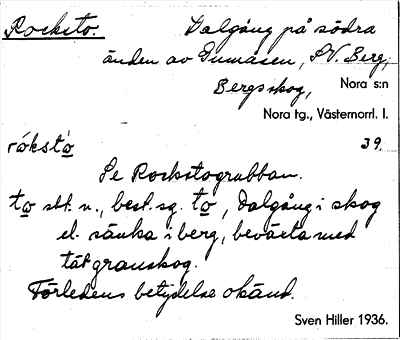 Rocksto. Dalgång på södra
änden av Gumåsen, SV. Berg,
Bergsskog, Nora s:n
Nora tg., Västernorrl. l.
rókstò̱ 39.
Se Rockstograbban.
to̱ sbt. n., best. sg. to̱, dalgång i skog
el. sänka i berg, bevärta med
tät granskog.
Förledens betydelse okänd.
Sven Hiller 1936.